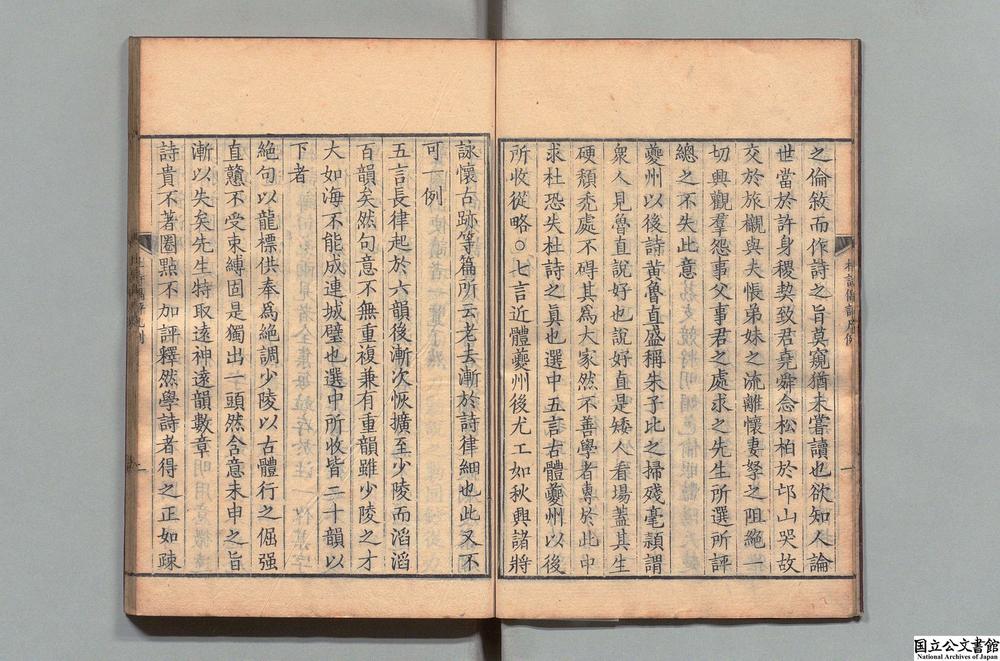 之倫敘而作詩之旨莫窺猶未嘗讀也欲知人論
世當於許身稷契致君堯舜念松柏於邙山哭故
交於旅櫬與夫悵弟妹之流離懷妻孥之阻絕一
切興觀羣怨事父事君之處求之先生所選所評
總之不失此意
夔州以後詩黃魯直盛稱朱子比之掃殘毫頴謂
衆人見魯直說好也說好直是矮人看場蓋其生
硬頹禿處不碍其為大家然不善學者專於此中
求杜恐失杜詩之眞也選中五言古體夔州以後
所收從略○七言近體夔州後尤工如秋興諸將
詠懷古跡等篇所云老去漸於詩律細也此又不
可一例
五言長律起於六韻後漸次恢擴至少陵而滔滔
百韻矣然句意不無重複兼有重韻雖少陵之才
大如海不能成連城璧也選中所收皆二十韻以
下者
絕句以龍標供奉爲絕調少陵以古體行之倔强
直戇不受束縛固是獨出一頭然含意未申之旨
漸以失矣先生特取遠神遠韻數章
詩貴不著圈點不加評釋然學詩者得之正如疎
国立公文書館
National Archives of Japan